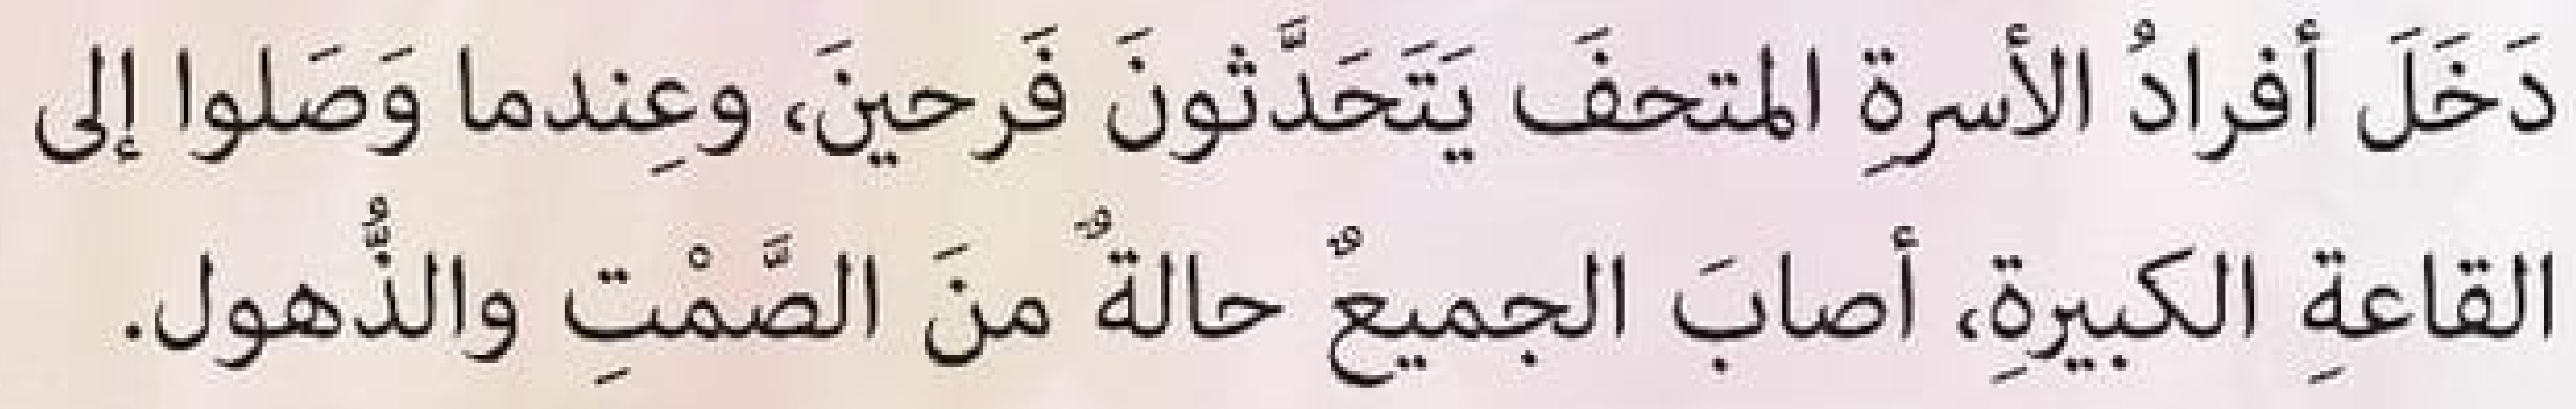 دَخَلَ أفرادُ الأسرةِ المتحفَ يَتَحَدَّثونَ فَرحينَ، وعِندما وَصَلوا إلى
القاعةِ الكبيرةِ، أصابَ الجميعٌ حالةٌ منَ الصَّمْتِ والذُّهول.